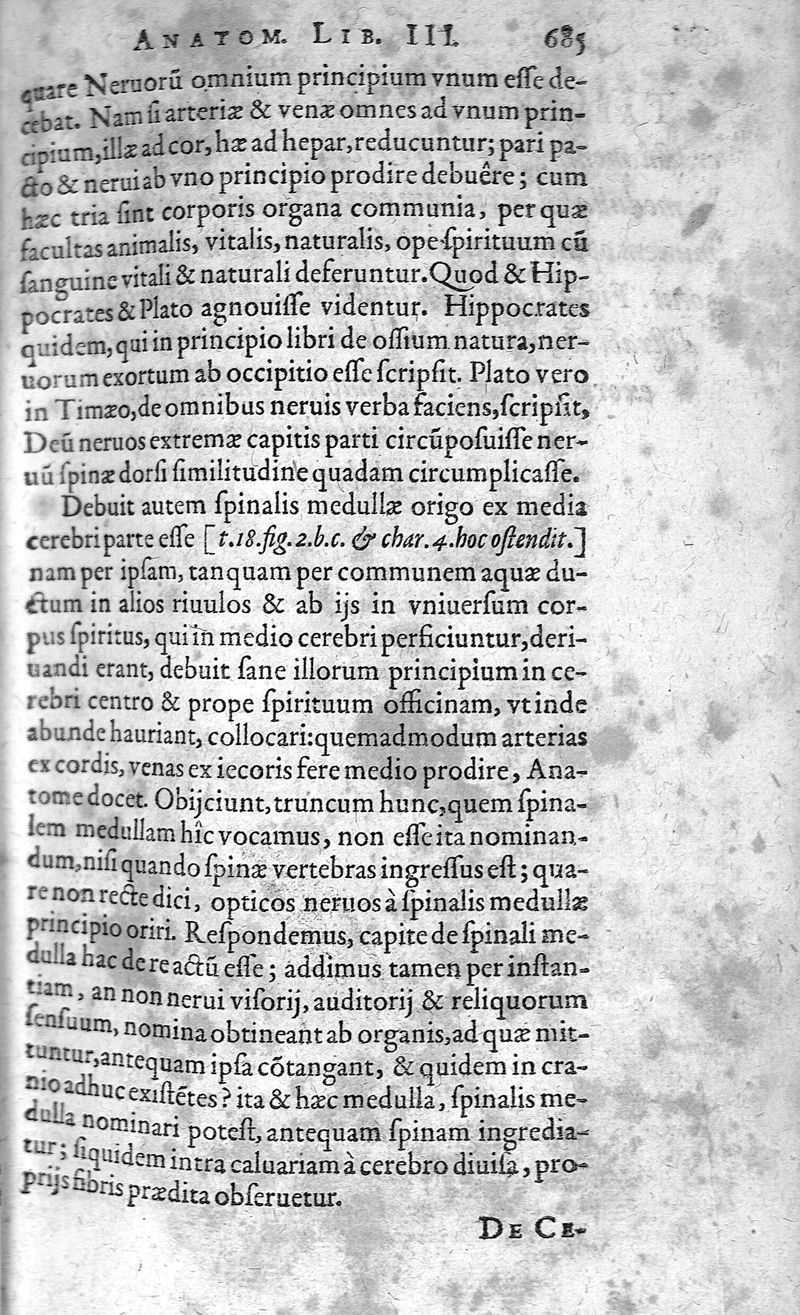 ANATOM. LIB. III. 685
quare Neruorũ omnium principium vnum eſſe de-
cebat. Nam ſi arteriæ & venæ omnes ad vnum prin-
cipium, illæ ad cor, hæ ad hepar, reducuntur; pari pa-
cto & nerui ab vno principio prodire debuêre; cum
hæc tria ſint corporis organa communia, per quæ
facultas animalis, vitalis, naturalis, ope ſpirituum cũ
ſanguine vitali & naturali deferuntur. Quod & Hip-
pocrates & Plato agnouiſſe videntur. Hippocrates
quidem, qui in principio libri de oſſium natura, ner-
uorum exortum ab occipitio eſſe ſcripſit. Plato vero
in Timæo, de omnibus neruis verba faciens, ſcripſit,
Deũ neruos extremæ capitis parti circũpoſuiſſe ner-
uũ ſpinæ dorſi ſimilitudine quadam circumplicaſſe.
Debuit autem ſpinalis medullæ origo ex media
cerebri parte eſſe [t.18.fig.2.b.c. & char.4.hoc oſtendit.]
nam per ipſam, tanquam per communem aquæ du-
ctum in alios riuulos & ab ijs in vniuerſum cor-
pus ſpiritus, qui in medio cerebri perficiuntur, deri-
uandi erant, debuit ſane illorum principium in ce-
rebri centro & prope ſpirituum officinam, vt inde
abunde hauriant, collocari: quemadmodum arterias
ex cordis, venas ex iecoris fere medio prodire, Ana-
tome docet. Obijciunt, truncum hunc, quem ſpina-
lem medullam hîc vocamus, non eſſe ita nominan-
dum, niſi quando ſpinæ vertebras ingreſſus eſt; qua-
re non recte dici, opticos neruos à ſpinalis medullæ
principio oriri. Reſpondemus, capite de ſpinali me-
dulla hac de re actũ eſſe; addimus tamen per inſtan-
tiam, an non nerui viſorij, auditorij & reliquorum
ſenſuum, nomina obtineant ab organis, ad quæ mit-
tuntur, antequam ipſa cõtangant, & quidem in cra-
nio adhuc exiſtẽtes? ita & hæc medulla, ſpinalis me-
dulla nominari poteſt, antequam ſpinam ingredia-
tur; ſiquidem intra caluariam à cerebro diuiſa, pro-
prijs fibris prædita obſeruetur.
DE CE-